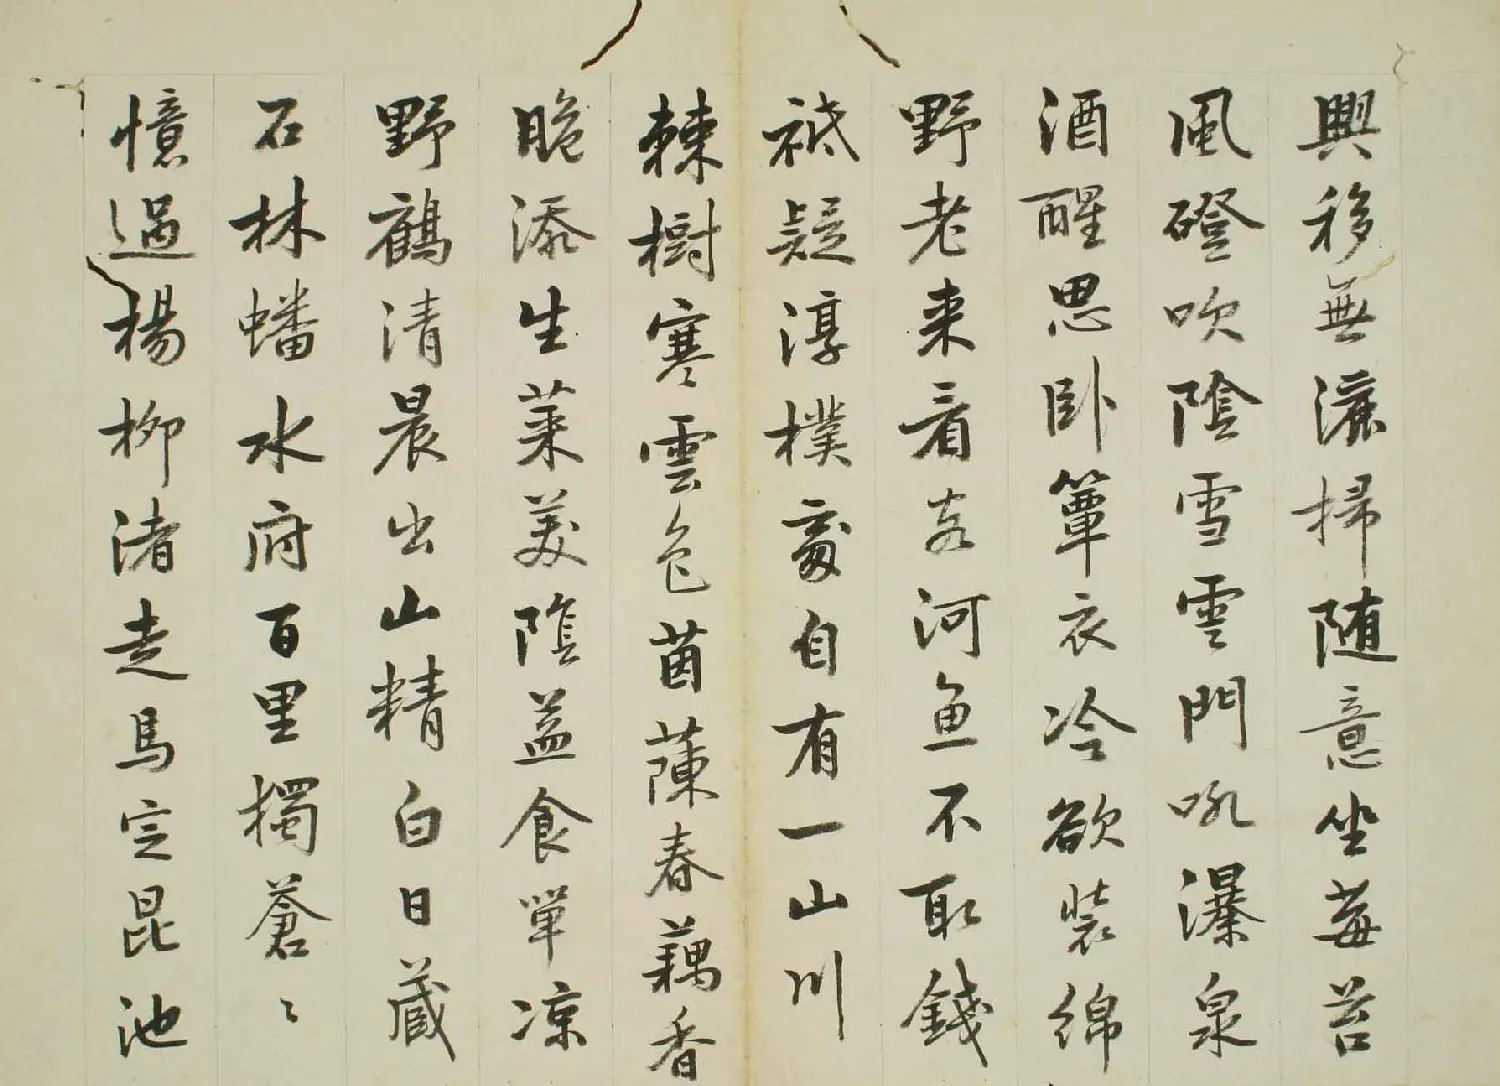 興移無灑掃随意坐莓苔
風磴吹陰雪雲門吼瀑泉
酒醒思卧簟衣冷欲裝綿
野老来看客河魚不取錢
祗疑淳樸處自有一山川
棘樹寒雲色茵蔯春藕香
脆添生菜美陰益食單凉
野鶴清晨出山精白日蔵
石林蟠水府百里獨蒼〻
憶過楊柳渚走馬定昆池